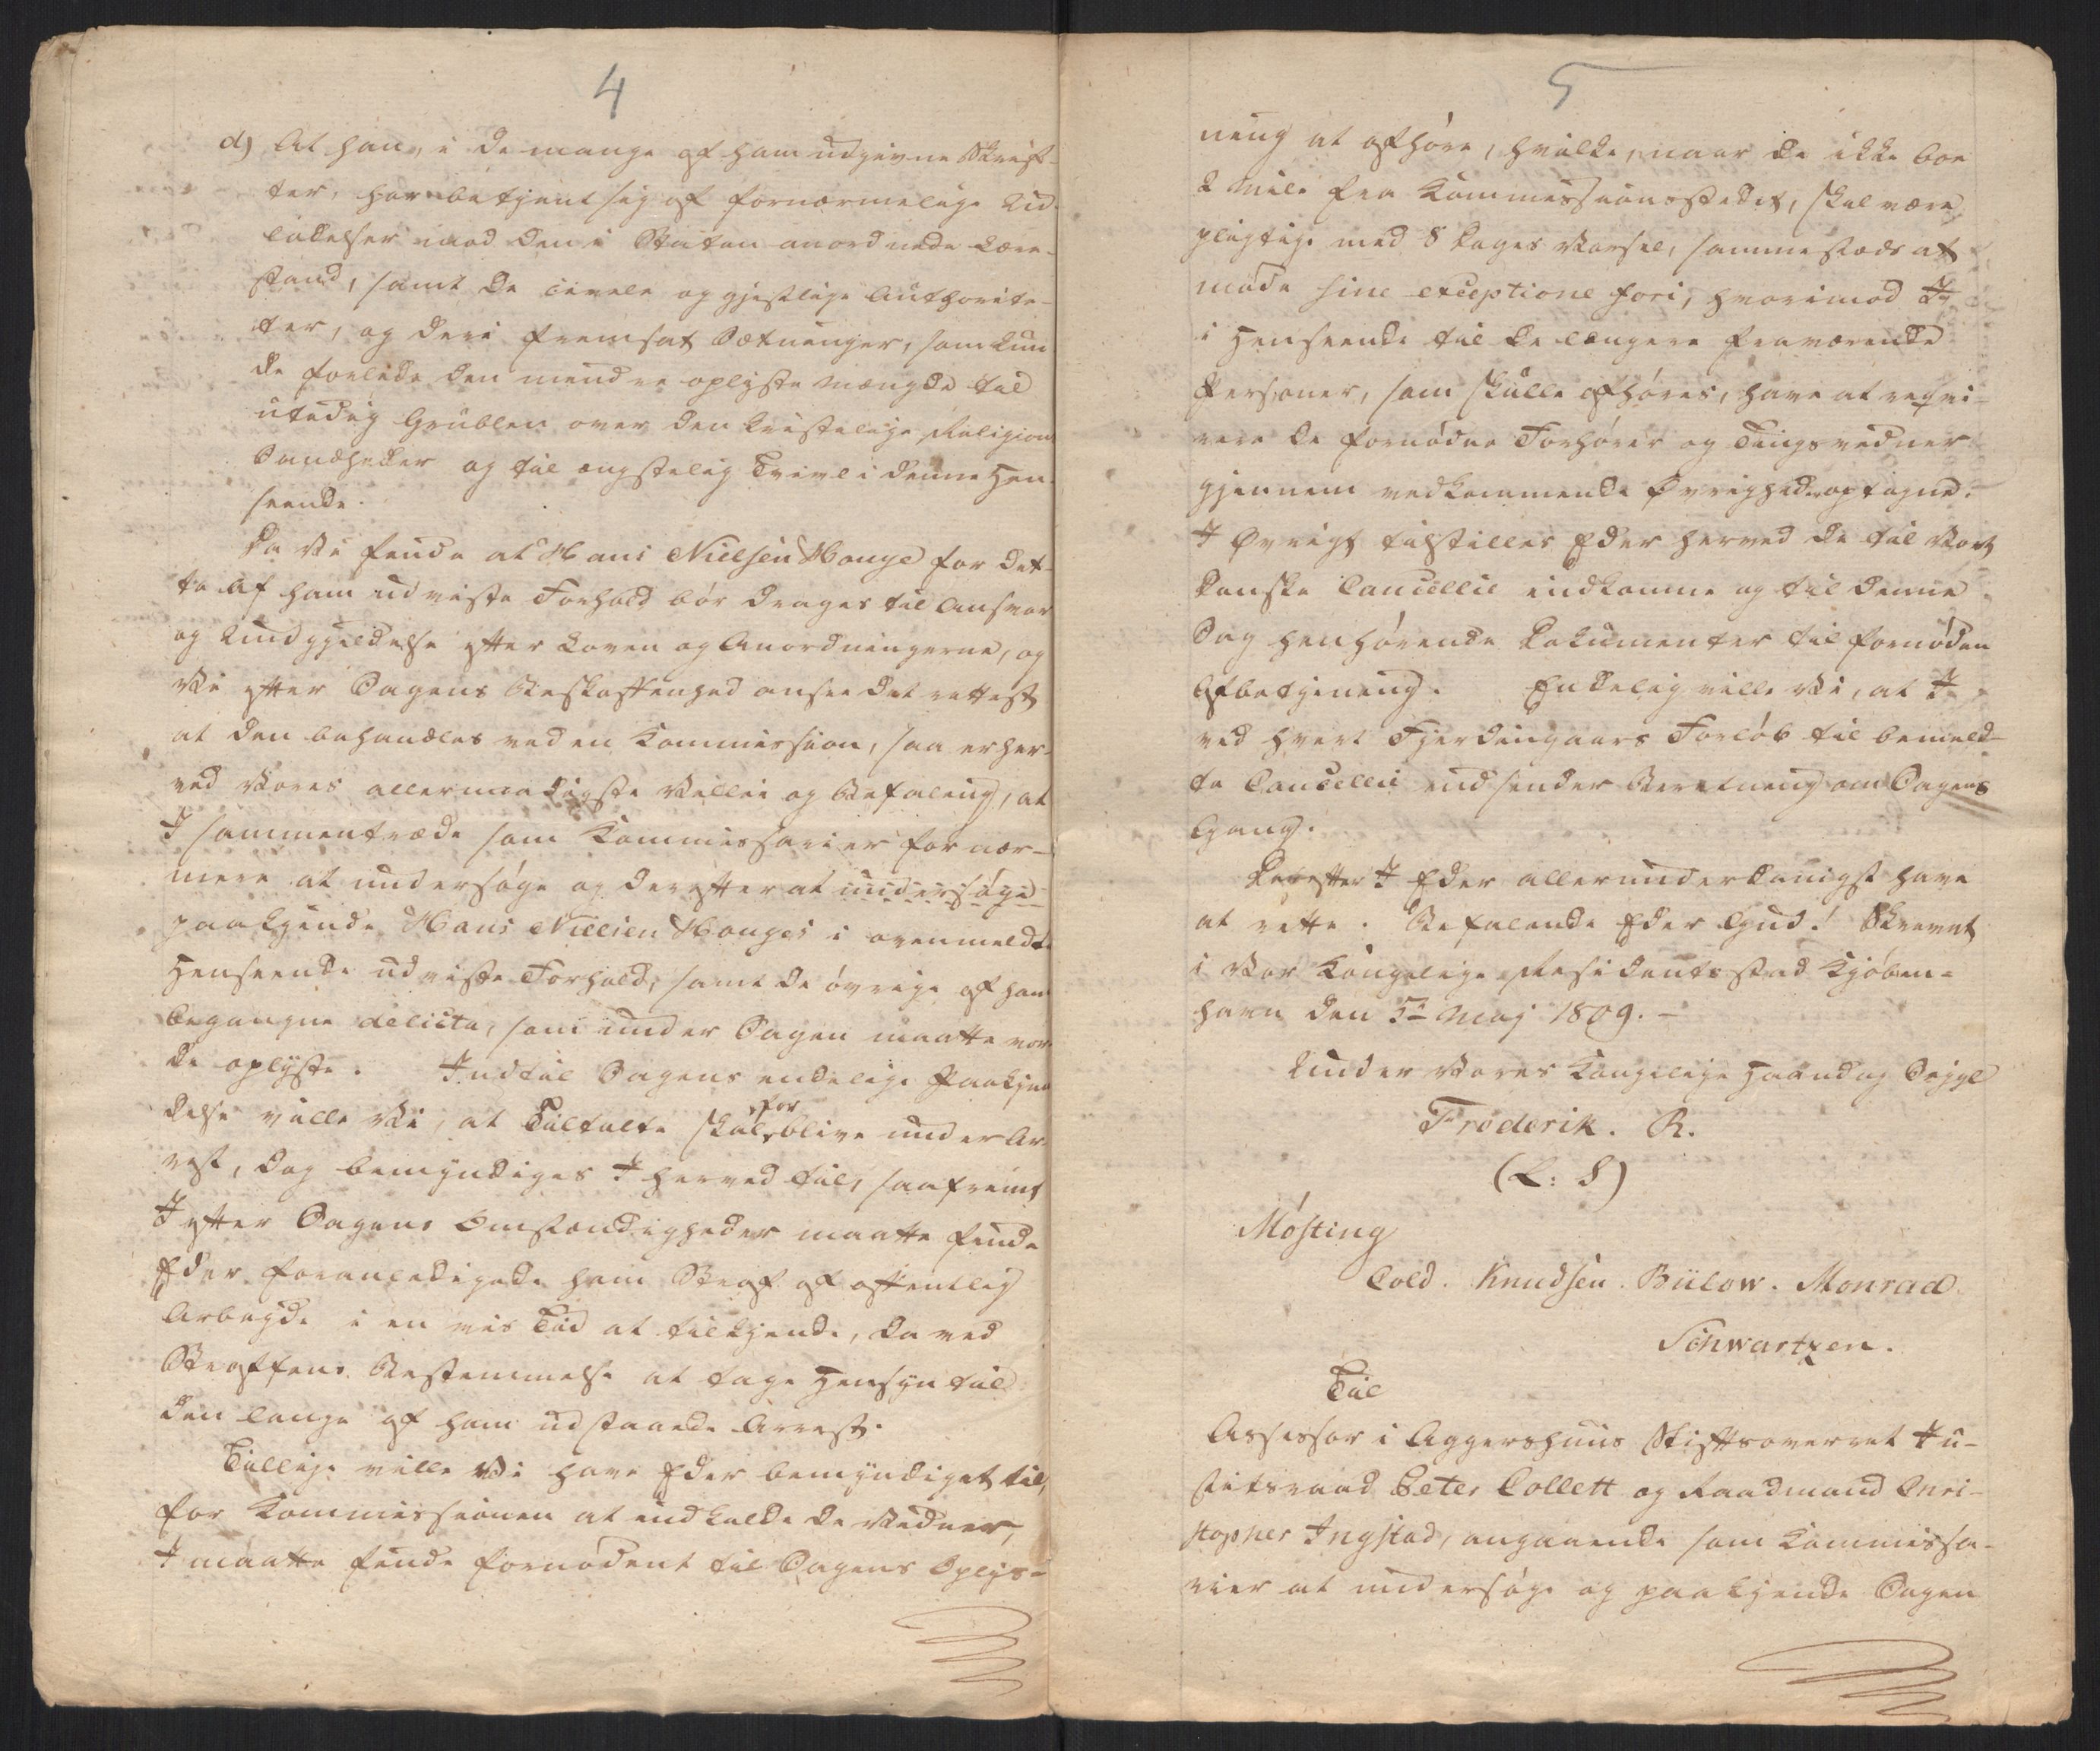 4
d) At han, i de mange af ham udgivne Skrif-
ter, har betjent sig af fornærmelige Ud-
ladelser imod den i Staten anordnede Lære-
stand, samt de civile og gjestlige Authorite-
ter, og deri fremsat Sætninger, som kun-
de forlede den mindre oplyste Mængde til
utidig Grublen over den kristelige Religions
Sandheder og til ængstelig Tvivl i denne Hen-
seende.
Da Vi finde at Hans Nielsen Houge for det-
te af ham udviste Forhold bør drages til Ansvar
og Undgjeldelse efter Loven og Anordningerne, og
Vi efter Sagens Beskaffenhed ansee det rettest
at den behandles ved en Kommission, saa er her-
ved Vores allernaadigste Villie og Befaling, at
I sammentræde som Kommissarier for nær-
mere at undersøge og derefter at undersøge
paakjende Hans Nielsen Houges i ovenmeldte
Henseende udviste Forhold, samt de øvrige af ham
begangne delicta, som under Sagen maatte vor-
de oplyste. Indtil Sagens endelige Paakjen-
delse ville Vi, at Tiltalte skal for blive under Ar-
rest, dog bemyndiges I herved til, saafremt
I efter Sagens Omstændigheder maatte finde
Eder foranledigede ham Straf af offentlig
Arbejde i en vis Tid at tilkjende, da ved
Straffens Bestemmelse at tage Hensyn til
den lange af ham udstaaede Arrest.
Tillige ville Vi have Eder bemyndiget til,
for Kommissionen at indkalde de Vidner,
I maatte finde fornødent til Sagens Oplys-
5
ning at afhøre, hvilke, naar de ikke boe
2 Mile fra Kommissionsstedet, skal være
pligtige med 8 Dages Varsel, sammesteds at
møde sine exceptione fori, hvorimod I
i Henseende til de længere fraværende
Personer, som skulle afhøres, have at reqvi-
rere de fornødne Forhører og Tingsvidner
gjennem vedkommende Øvrighed optagne.
I Øvrigt tilstilles Eder herved de til Vort
danske Cancellie indkomne og til denne
Sag henhørende Dokumenter til fornøden
Afbetjening. Endelig ville Vi, at I
ved hvert Fjerdingaars Forløb til bemeld-
te Cancellie indsender Beretning om Sagens
Gang.
Derefter I Eder allerunderdanigst have
at rette. Befalende Eder Gud! Skrevet
i Vor Kongelige Residentsstad Kjøben-
havn den 5te Maj 1809. -
Under Vores Kongelige Haand og Segjl
Frederik. R.
(L: S)
Møsting
Cold. Knudsen. Bülow. Monrad
Schwartzen.
Til
Assessor i Aggershuus Stiftsoverret Ju-
stitsraad Peter Collett og Raadmand Chri-
stopher Ingstad, angaaende som Kommissa-
rier at undersøge og paakjende Sagen